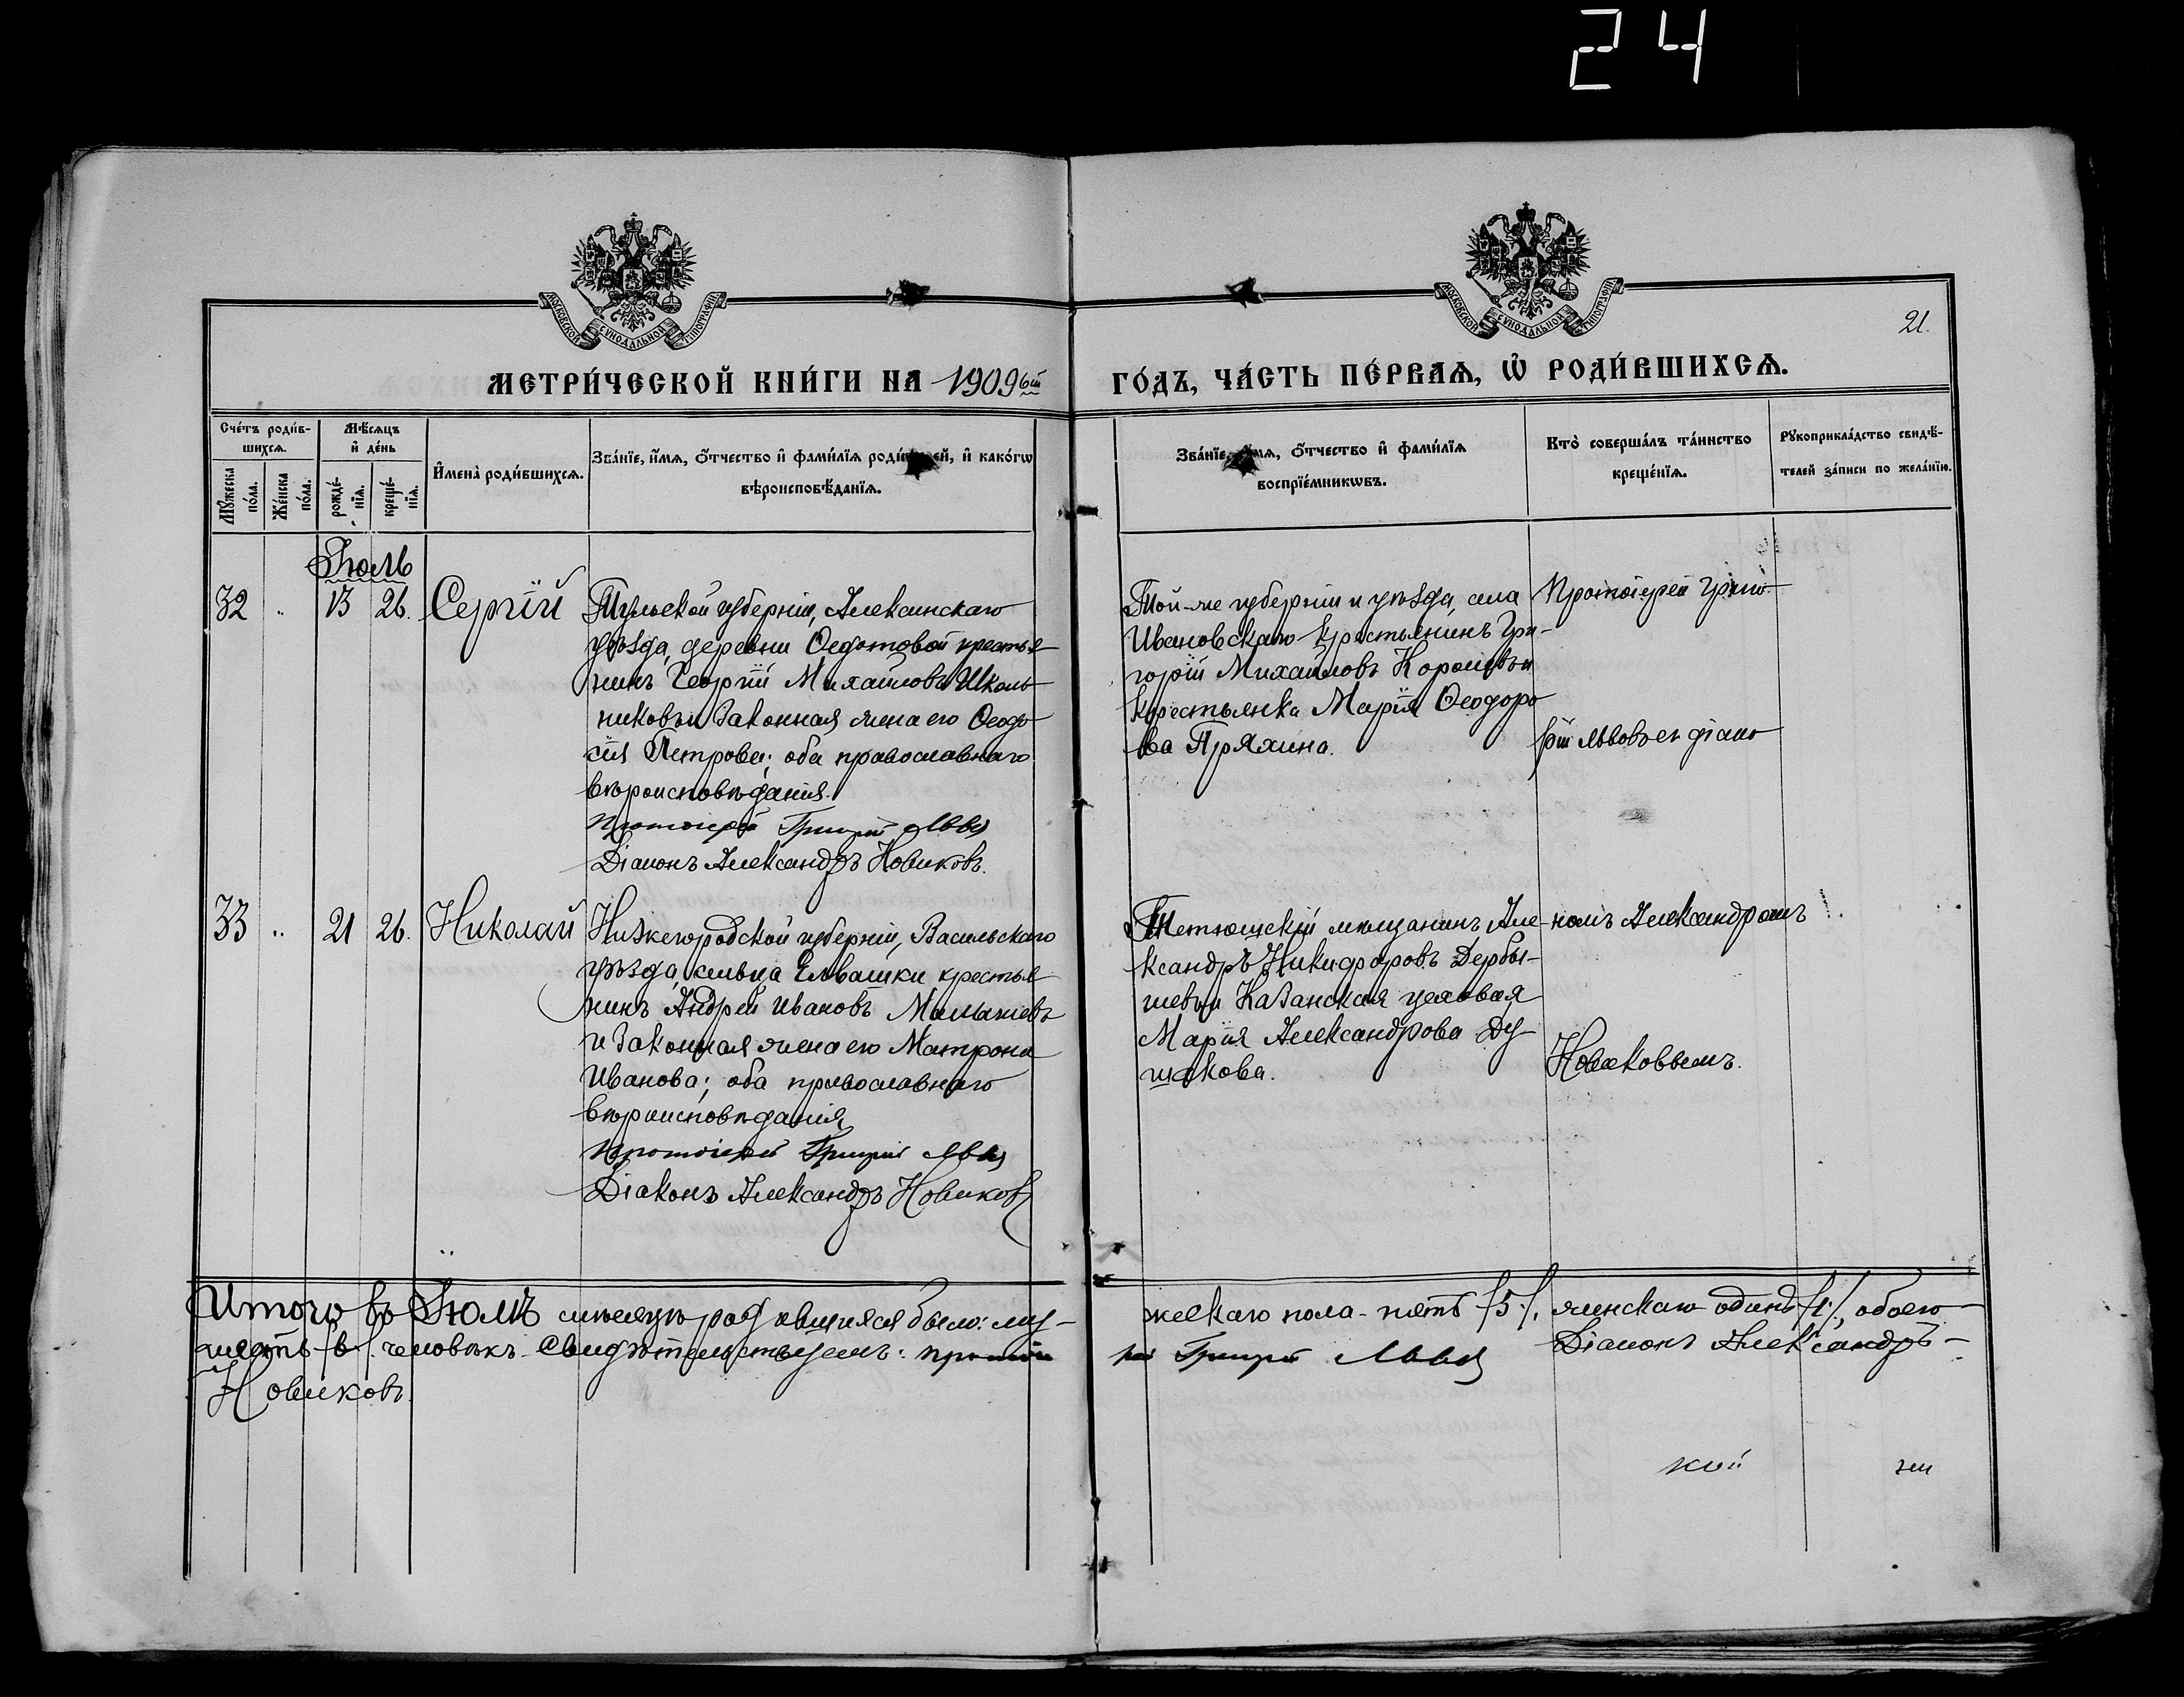 24
МОСКОВСКОЙ СѴНОДАЛЬНОЙ ТИПОГРАФІИ
МОСКОВСКОЙ СѴНОДАЛЬНОЙ ТИПОГРАФІИ
21.
МЕТРИ́ЧЕСКОЙ КНИ́ГИ НА 1909
ГО́ДЪ, ЧА́СТЬ ПЕ́РВАѦ, Ѡ҆ РОДИ́ВШИХСѦ.
Сче́тъ роди́в-
шихсѧ.
Мꙋ́жеска по́ла.
Же́нска по́ла.
Мѣ́сѧцъ
и҆ де́нь
рожде́-
нїѧ.
креще́-
нїѧ.
И҆мена̀ роди́вшихсѧ.
Зва́нїе, и҆́мѧ, ѻ҆́тчество и҆ фами́лїѧ роди́телей, и҆ како́гѡ
вѣроисповѣ́данїѧ.
Зва́нїе, и҆́мѧ, ѻ҆́тчество и҆ фами́лїѧ
воспрїе́мникѡвъ.
Кто̀ соверша́лъ та́инство
креще́нїѧ.
Рꙋкоприкла́дство свидѣ́-
телей за́писи по жела́нїю.
Іюль
32 " 13 26. Сергій
Тульской губерніи, Алексинскаго
уѣзда, деревни Ѳедотовой крестья
нинъ Георгій Михаиловъ Школь
никовъ и законная жена его Ѳеодо
сія Петрова; оба православнаго
вѣроисповѣданія.
Протоіерей Григорій Львовъ
Діаконъ Александръ Новиковъ.
Той-же губерніи и уѣзда, села
Ивановскаго крестьянинъ Гри-
горій Михаиловъ и
крестьянка Марія Ѳеодоро
ва Пряхина.
Протоіерей Григо-
рій Львовъ съ діако
33 " 21 26. Николай
Нижегородской губерніи, Васильскаго
уѣзда, сельца Елвашки крестья
нинъ Андрей Ивановъ
и законная жена его Матрона
Иванова; оба православнаго
вѣроисповѣданія
Протоіерей Григорій Львовъ
Діаконъ Александръ Новиковъ
Тетюшскій мѣщанинъ Але-
ксандръ Никифоровъ Дербы-
шевъ и Казанская цеховая
Марія Александрова Ду-
шакова.
номъ Александромъ
Новиковымъ.
Итого въ Іюлѣ мѣсяцѣ родившихся было: му-
жескаго пола - пять /5/, женскаго одинъ /1/, обоего
шесть /6/ человѣкъ. Свидѣтельствуемъ: протоіе
рей Григорій Львовъ Діаконъ Александръ -
Новиковъ.
кой